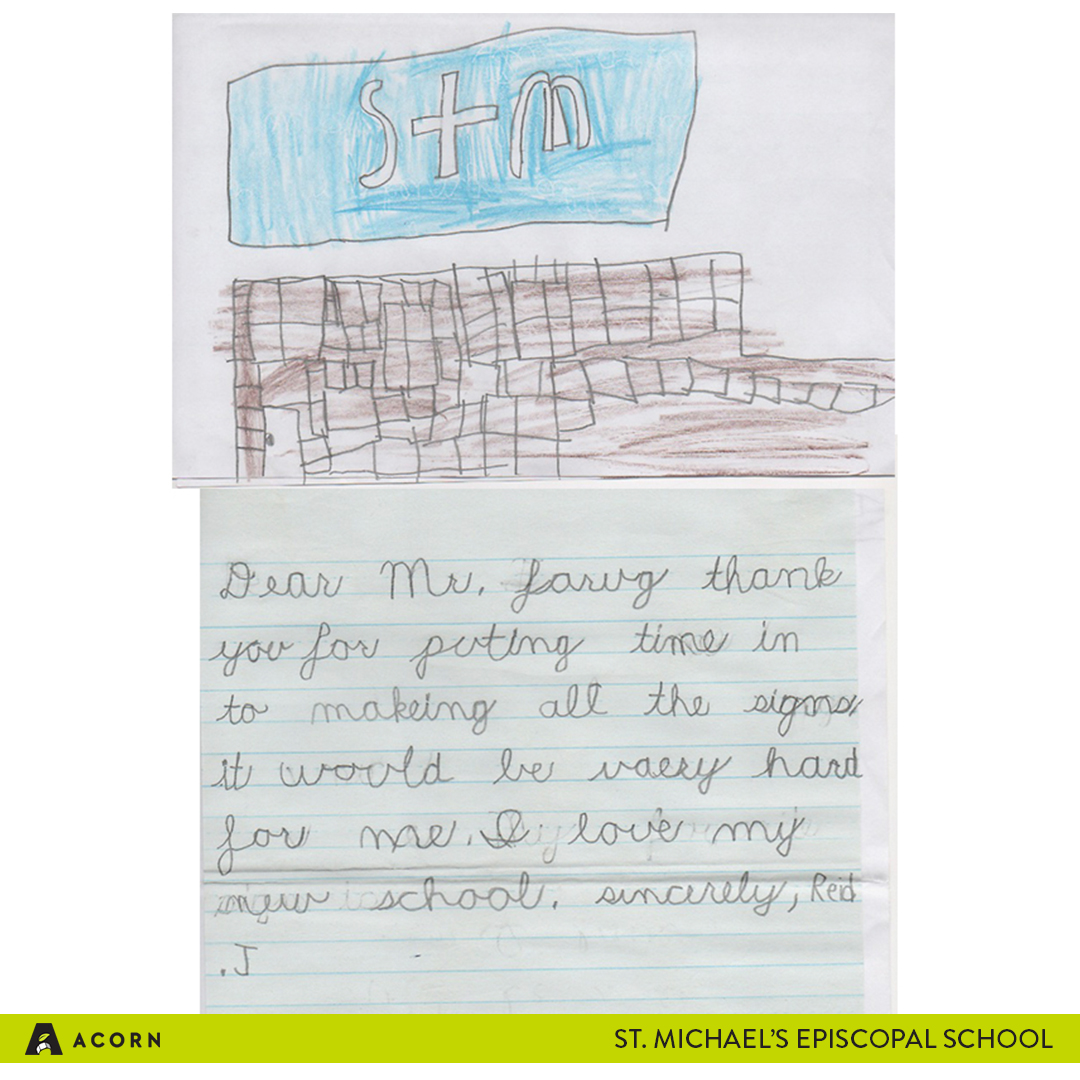 S+M
Dear Mr. Farug thank
you for puting time in
to makeing all the signs
it would be vaery hard
for me. I love my
new school. sincerely, Reid
.J
ACORN
ST. MICHAEL'S EPISCOPAL SCHOOL